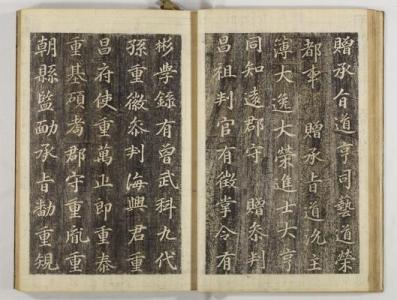 贈承旨道亨司藝道榮
都事　贈承旨道沇主
薄大逸大榮進士大亨
同知遠郡守　贈叅判
昌祖判官有徵掌令有
彬學錄有曾武科九代
孫重徽叅判海興君重
昌府使重萬正郎重泰
重基碩耇郡守重胤重
朝縣監勔承旨勫重䂓